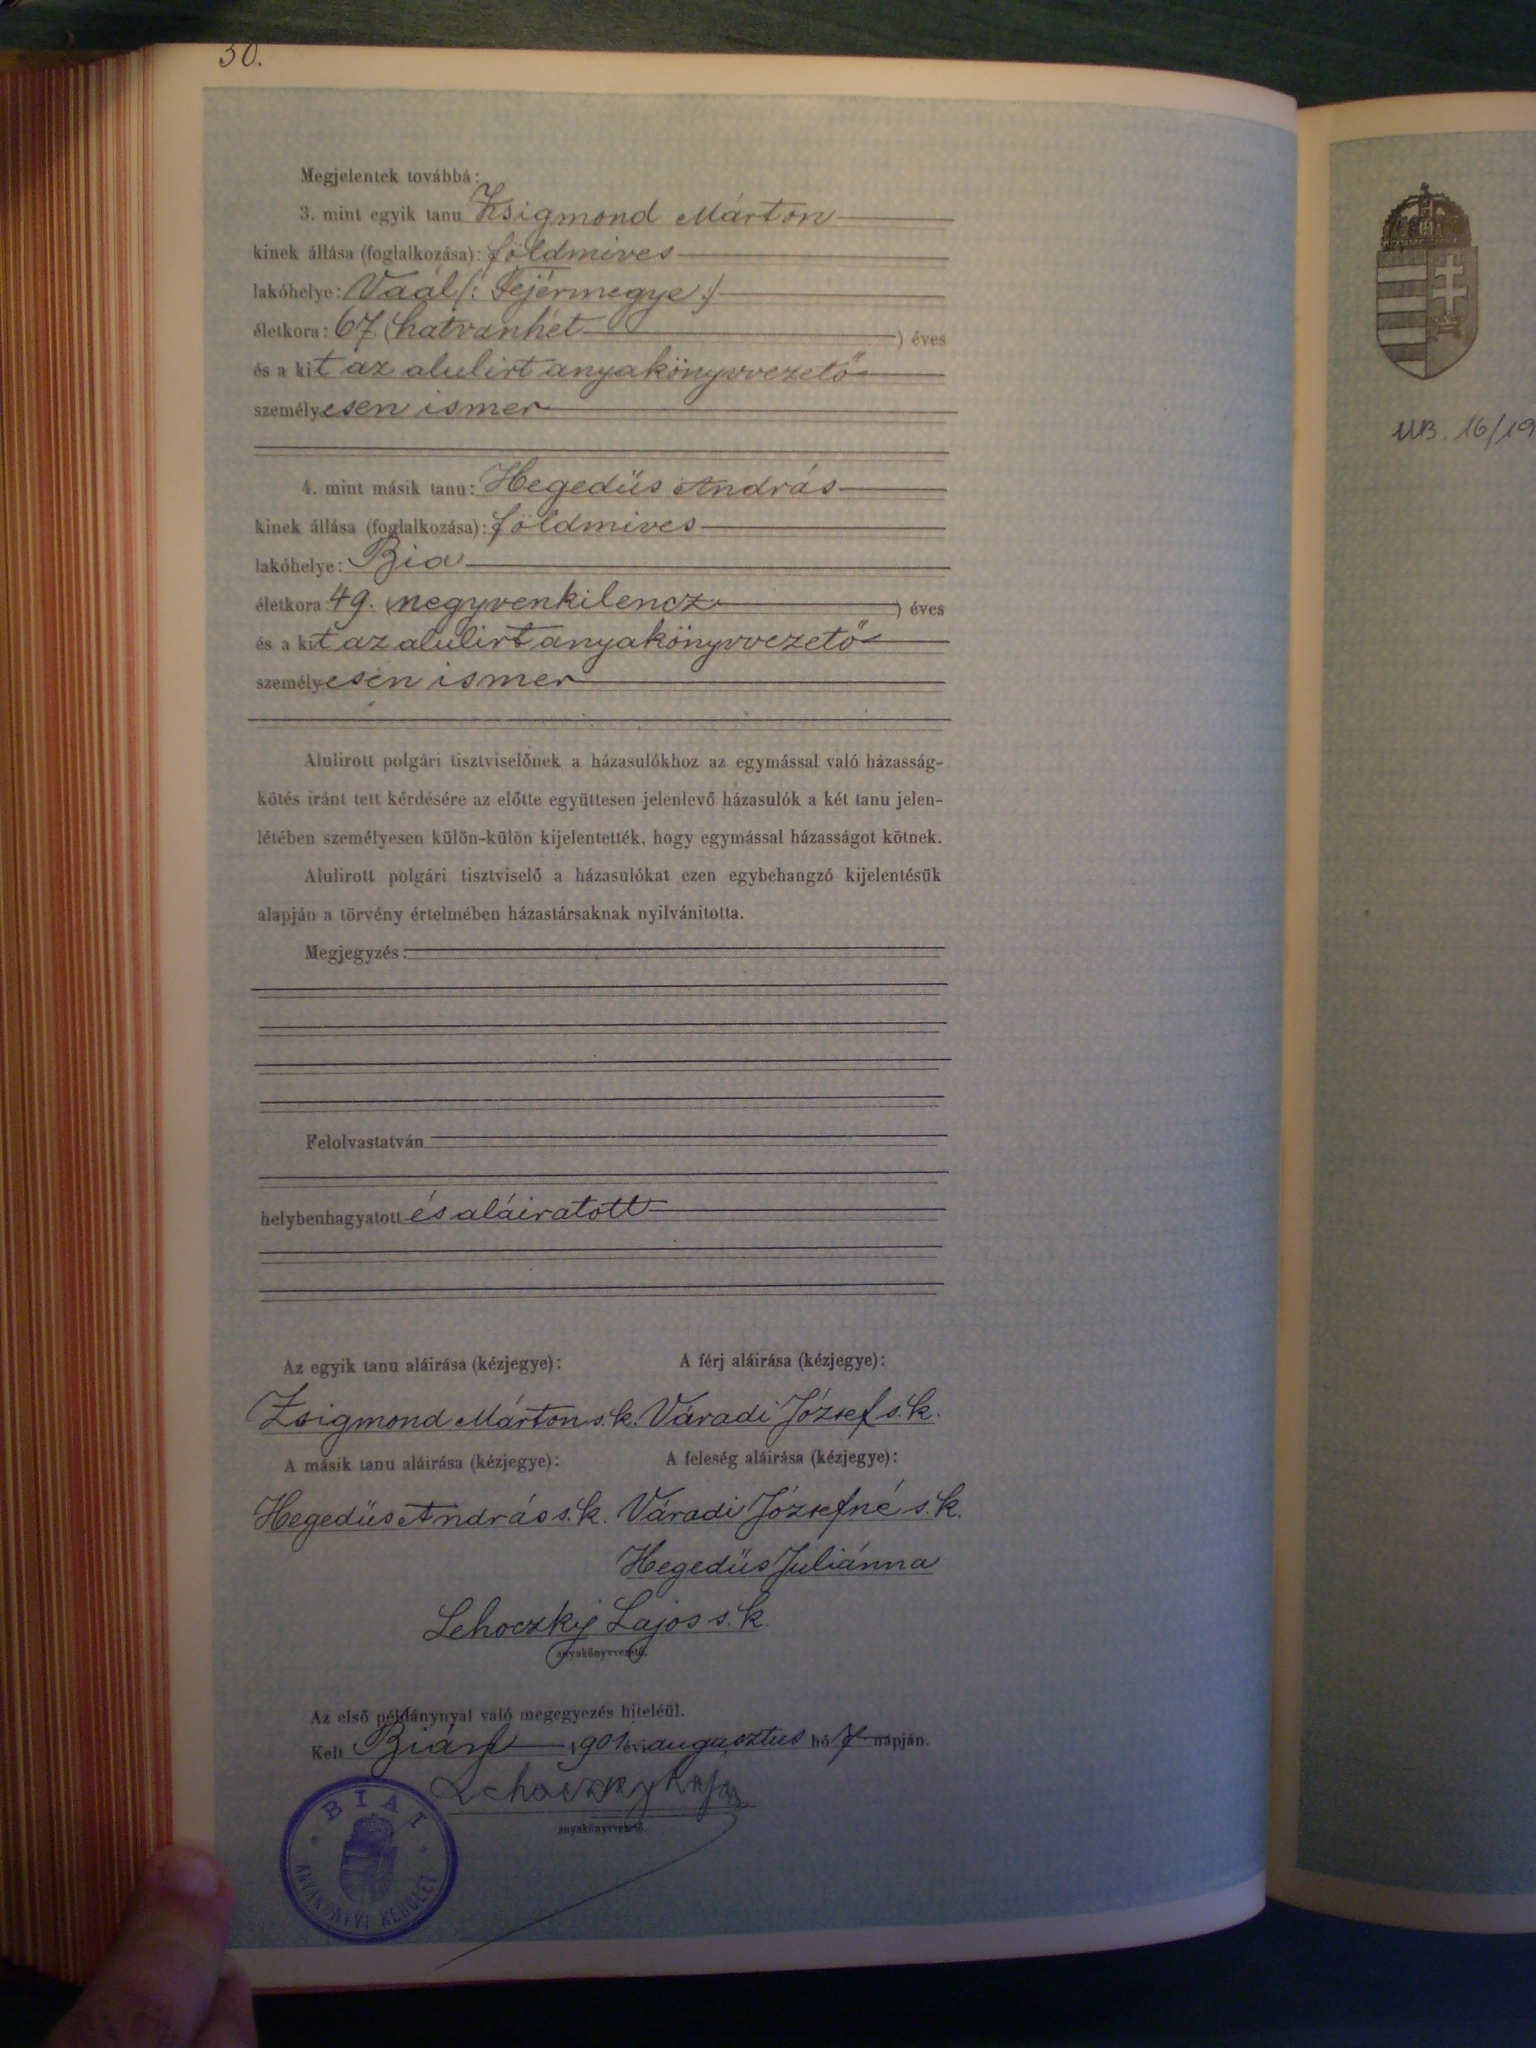 30.
Megjelentek továbbá:
3. mint egyik tanu Zsigmond Márton
kinek állása (foglalkozása): földmives
lakóhelye: Vaál /: Fejérmegye :/
életkora: 67. (hatvanhét ) éves
és a kit az alulirt anyakönyvvezető
személyesen ismer
4. mint másik tanu: Hegedüs András
kinek állása (foglalkozása): földmives
lakóhelye: Bia
életkora: 49. (negyvenkilencz ) éves
és a kit az alulirt anyakönyvvezető
személyesen ismer
Alulirott polgári tisztviselőnek a házasulókhoz az egymással való házasság-
kötés iránt tett kérdésére az előtte együttesen jelenlevő házasulók a két tanu jelen-
létében személyesen külön-külön kijelentették, hogy egymással házasságot kötnek.
Alulirott polgári tisztviselő a házasulókat ezen egybehangzó kijelentésük
alapján a törvény értelmében házastársaknak nyilvánitotta.
Megjegyzés:
Felolvastatván
helybenhagyatott és aláiratott
Az egyik tanu aláirása (kézjegye): A férj aláirása (kézjegye):
Zsigmond Márton s.k. Váradi József s.k.
A másik tanu aláirása (kézjegye): A feleség aláirása (kézjegye):
Hegedüs András s.k. Váradi Józsefné s.k.
Hegedüs Juliánna
Lehoczky Lajos s.k.
anyakönyvvezető.
Az első példánynyal való megegyezés hiteléül.
Kelt Bián 1901 évi augusztus hó 7 napján.
Lehoczky Lajos
anyakönyvvezető.
BIAI
ANYAKÖNYVI KERÜLET
UB. 16/19